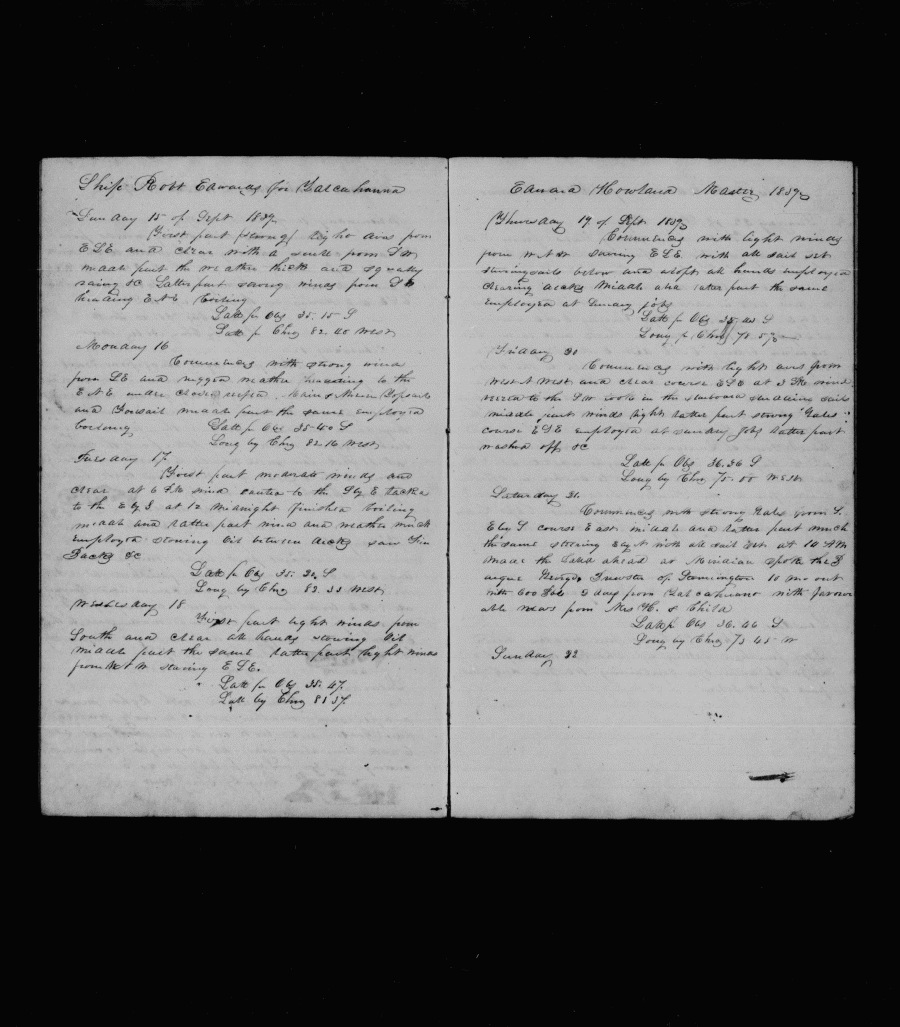 Ship Robt Edwards for Talcahuana
Sunday 15 of Sept 1839
First part strong light airs from
ESE and clear with a swell from SW
middle part the weather thick and squally
raing &c Latter part strong winds from
heading ENE Boiling
Latt pr Obs 35.15 S
Latt pr Chro 82.40 West
Monday 16
Commences with strong wind
from SE and rugged weather heading to the
ENE under close reefed Main & Mizen Topsails
and Foresail middle part the same employed
boiling Latt pr Obs 35-40 S
Long by Chro 82.16 West
Tuesday 17
First part moderate winds and
clear at 6 PM wind canted to the S by E tacked
to the E by S at 12 midnight finished boiling
middle and latter part wind and weather much
employed stowing Oil between decks saw Fin
Backs &c
Latt pr Obs 35.32 S
Long by Chro 82.33 West
Wednesday 18
First part light winds from
South and clear all hands stowing Oil
middle part the same latter part light winds
from N W stearing ESE.
Latt pr Obs 35.47.
Latt by Chro 81 57.
Edward Howland Master 1839
Thursday 19 of Sept 1839
Commences with light winds
from WNW stearing ESE with all sail set
studingsails below and aloft all hands employed
clearing decks Middle and later part the same
employed at sundry jobs
Latt pr Obs 35.43 S
Long pr Chro 78.57
Friday 20
Commences with light airs from
West N West and clear course ESE at 3 PM wind
to the SW took in the starboard studding sails
middle part winds light latter part strong Gales
course ESE employed at sundry jobs latter part
washed off &c
Latt pr Obs 36.36 S
Long by Chro 75.00 West
Saturday 21.
Commences with strong Gales from S.
E by S course East middle and latter part much
the same steering E by N with all sail set at 10 AM
made the Land ahead at Meridian spoke the B
arque George, Brewster of Stonington 10 mo out
with 600 bbls 2 days from Talcahuano with favour
able news from Mrs H. & Child
Latt pr Obs 36.46 S
Long by Chro 73 45 W
Sunday 22